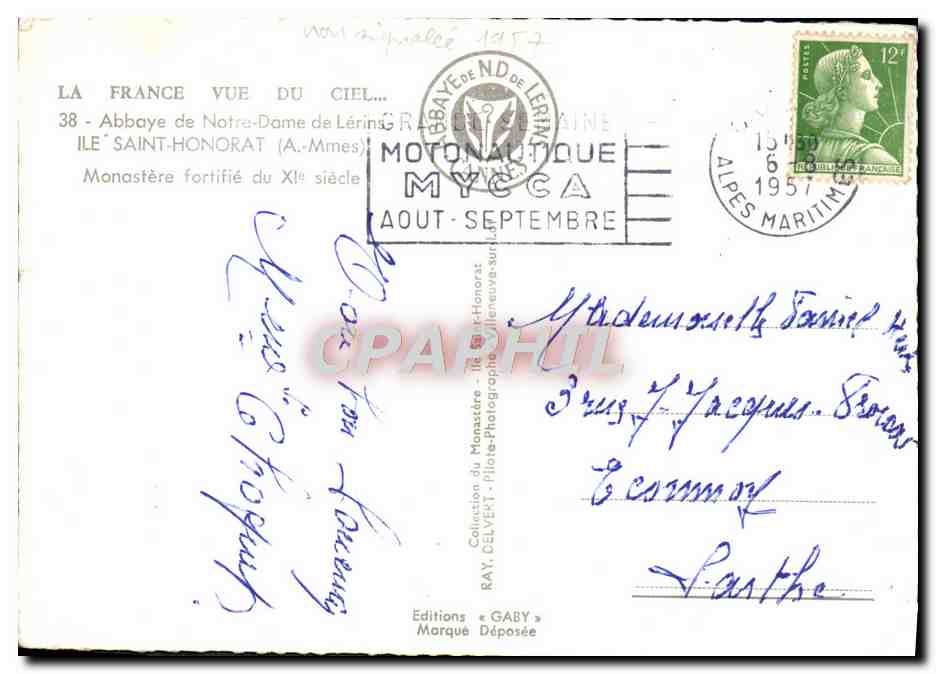 non signalée 1957
LA FRANCE VUE DU CIEL...
38 - Abbaye de Notre-Dame de Lérins
ILE SAINT-HONORAT (A.-Mmes)
Monastère fortifié du XIe siècle
ABBAYE DE N.D. DE LERINS
CANNES
GRANDE SEMAINE
MOTONAUTIQUE
MYCCA
AOUT - SEPTEMBRE
15 H30
6 - 8
1957
ALPES MARITIMES
POSTES
12F
REPUBLIQUE FRANÇAISE
Bon souvenir
Mme
Collection du Monastère - Ile Saint-Honorat
RAY. DELVERT - Pilote-Photographe Villeneuve-sur-Lot
CPAPHIL
Mademoiselle
3 rue J. Jacques
Ecommoy
Sarthe
Editions « GABY »
Marque Déposée